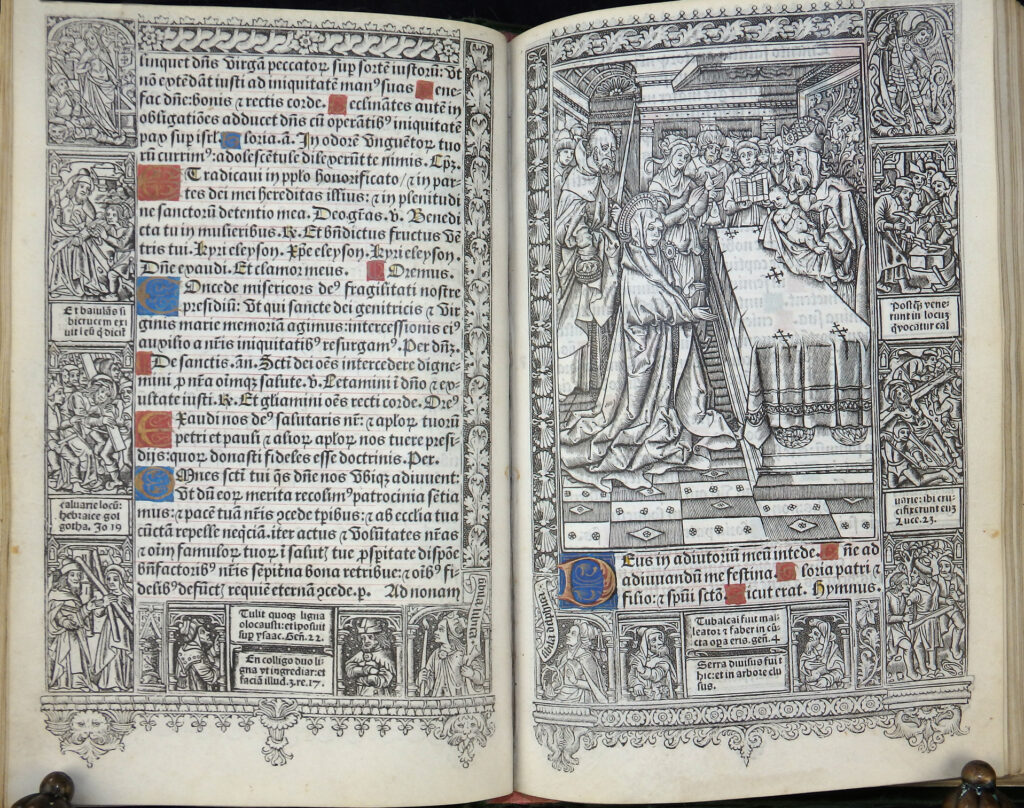 linquet dñs virgã peccatoꝝ sup sortẽ iustoꝝ: vt
nõ extẽdãt iusti ad iniquitatẽ man⁹ suas Bene
fac dñe: bonis ⁊ rectis corde. Declinates autẽ in
obligatiões adducet dñs cũ operãtib⁹ iniquitatẽ
pax sup isrl. Gloria. ã. In odorẽ vnguẽtoꝝ tuo
rũ currim⁹: adolescẽtule dilexerũt te nimis. Cp̃r.
Et radicaui in pplo honorificato/⁊ in par
tes dei mei hereditas illius: ⁊ in plenitudi
ne sanctorũ detentio mea. Deo grãs. v. Benedi
cta tu in mulieribus. R. Et bñdictus fructus vẽ
tris tui. Kyri eleyson. Xpe eleyson. Kyri eleyson.
Dñe exaudi. Et clamor meus. Oremus.
Concede misericors de⁹ fragilitati nostre
presidiũ: vt qui sancte dei genitricis ⁊ vir
ginis marie memoriã agimus: intercessionis ei⁹
auxilio a nr̃is iniquitatib⁹ resurgam⁹. Per dñz.
De sanctis. ãn. Sctĩ dei oẽs intercedere digne
mini ꝓ nr̃a oĩmqꝫ salute. v. Letamini ĩ dño ⁊ ex
ultate iusti. R. Et gl̃iamini oẽs recti corde. Ore⁹
Exaudi nos de⁹ salutaris nr̃: ⁊ apl̃oꝝ tuorũ
petri et pauli ⁊ alioꝝ apl̃oꝝ nos tuere presi
dijs: quoꝝ donasti fideles esse doctrinis. Per.
Omnes sctĩ tui q̃s dñe nos vbiqꝫ adiuuent:
vt dũ eoꝝ merita recolim⁹ patrocinia sẽtia
mus: ⁊ pacẽ tuã nr̃is ꝯcede tp̃ibus: ⁊ ab ecclia tua
cũctã repelle neq̃ciã: iter actus ⁊ volũtates nr̃as
⁊ oĩm famuloꝝ tuoꝝ ĩ salutẽ tue ꝓspitate dispõe
bñfactorib⁹ nr̃is sepiterna bona retribue: ⁊ oĩb⁹ fi-
delib⁹ defũct̃ requiẽ eternã ꝯcede. p. Ad nonam
Et baiulãs si
bi crucem exi
uit i eũ q̃ dicit
caluarie locũ:
hebraice gol
gotha. Jo 19
Tulit quoqꝫ ligna
olocausti: et iposuit
sup ysaac. Gen̄. 22.
En colligo duo li
gna vt ingrediar: et
faciã illud. 3. re. 17.
Postq̃ꝫ vene
runt in locuꝫ
q̃ vocatur cal
uarie: ibi cru
cifixerunt euꝫ
Luce. 23.
Deus in adiutoriũ meũ intẽde. Dñe ad
adiuuandũ me festina. Gloria patri ⁊
filio: ⁊ spũi sctõ. Sicut erat. Hymnus.
Tubalcai fuit mal-
leator ⁊ faber in cũ
cta opa eris. gen̄. 4
Serra diuisus fui t
hic: et in arbore clu
sus.